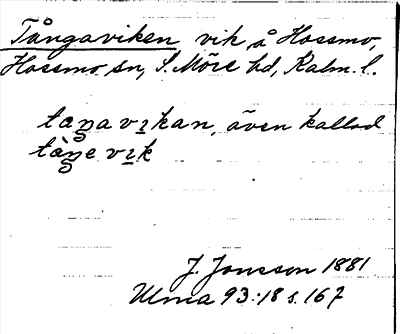 Tångaviken vik å Hossmo,
Hossmo sn, S. Möre hd, Kalm. l.
taŋavıkan, även kallad
tàŋevık
J. Jonsson 1881
Ulma 93:18 s. 167